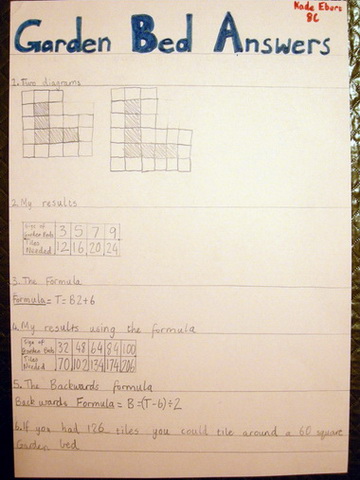 Kade Ebers
8C
Garden Bed Answers
1. Two diagrams
2. My results
Size of Garden Beds 3 5 7 9
Tiles Needed 12 16 20 24
3. The Formula
Formula = T = B2+6
4. My results using the formula
Size of Garden Beds 32 48 64 84 100
Tiles Needed 70 102 134 174 206
5. The Backwards formula
Backwards Formula = B =(T-6)÷2
6. If you had 126 tiles you could tile around a 60 square
Garden bed